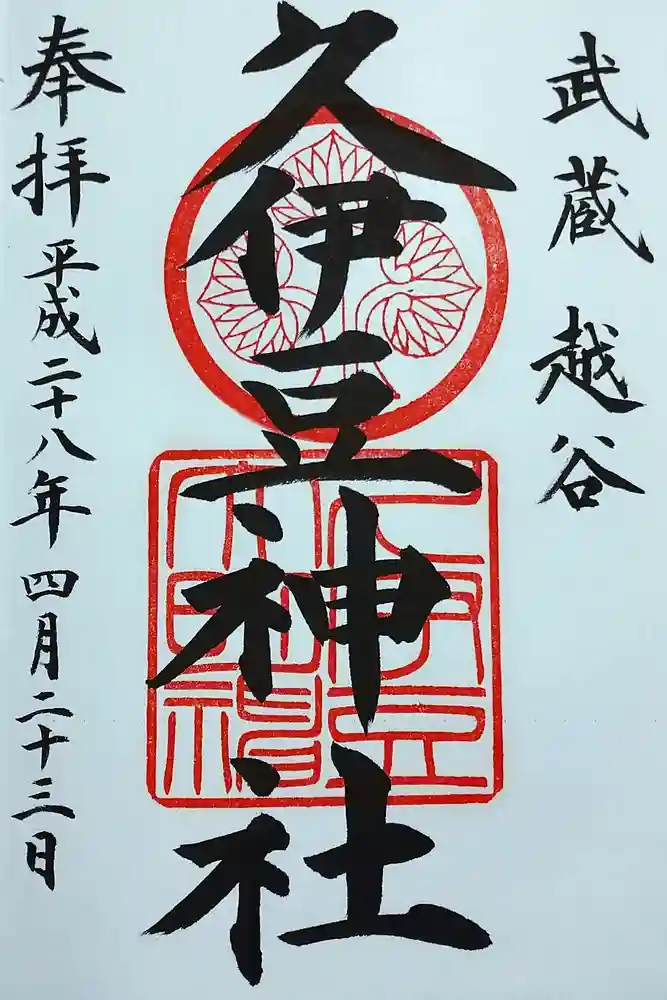 武蔵 越谷
久伊豆神社
奉拝 平成二十八年 四月二十三日